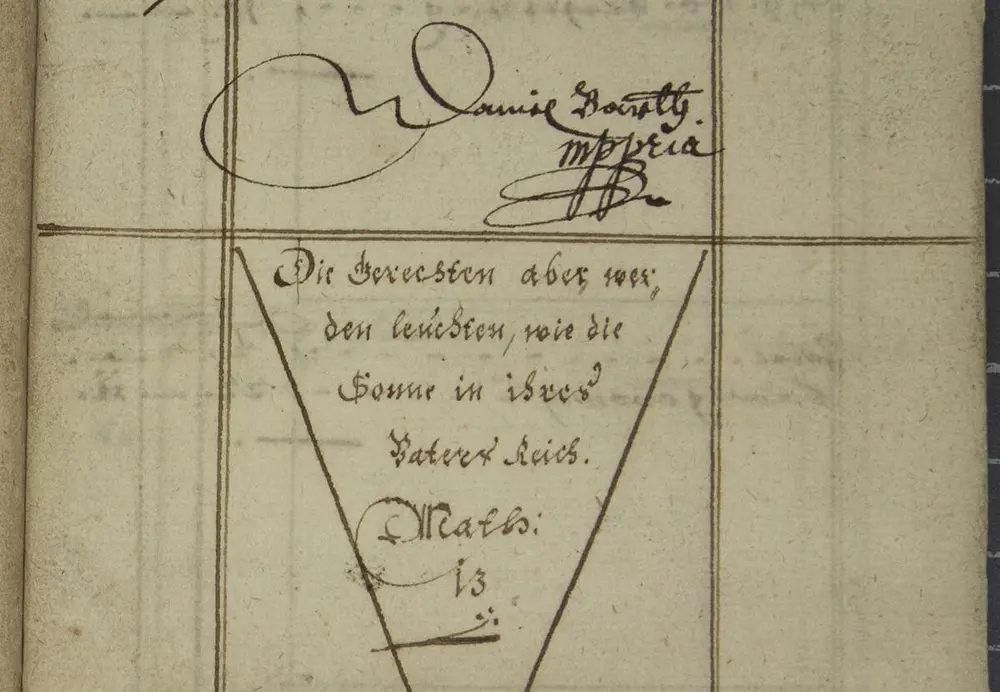 Daniel Barth.
mppria
Die Gerechten aber, wer„
den leuchten, wie die
Sonne in ihres
Vaters Reich.
Math:
13